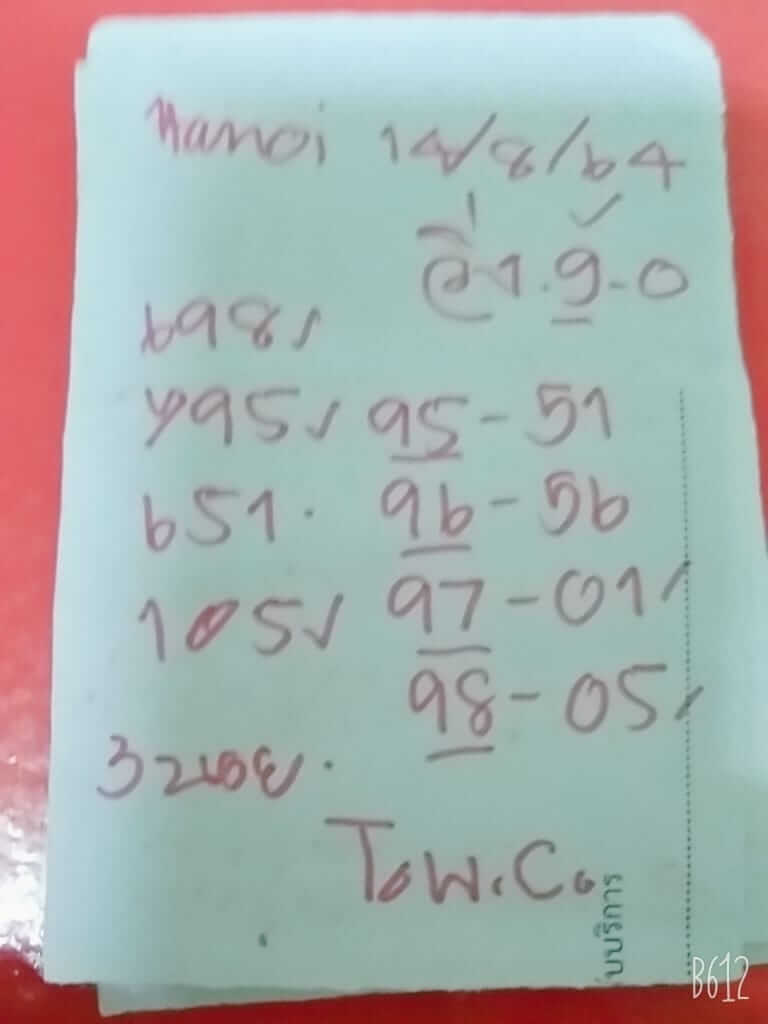 Hanoi 14/8/64
วิ่ 1.9-0
698✓
795✓ 95-51
651. 96-56
105✓ 97-01
98-05
3 ฮานอย.
ToW.Co
บบริการ
B612